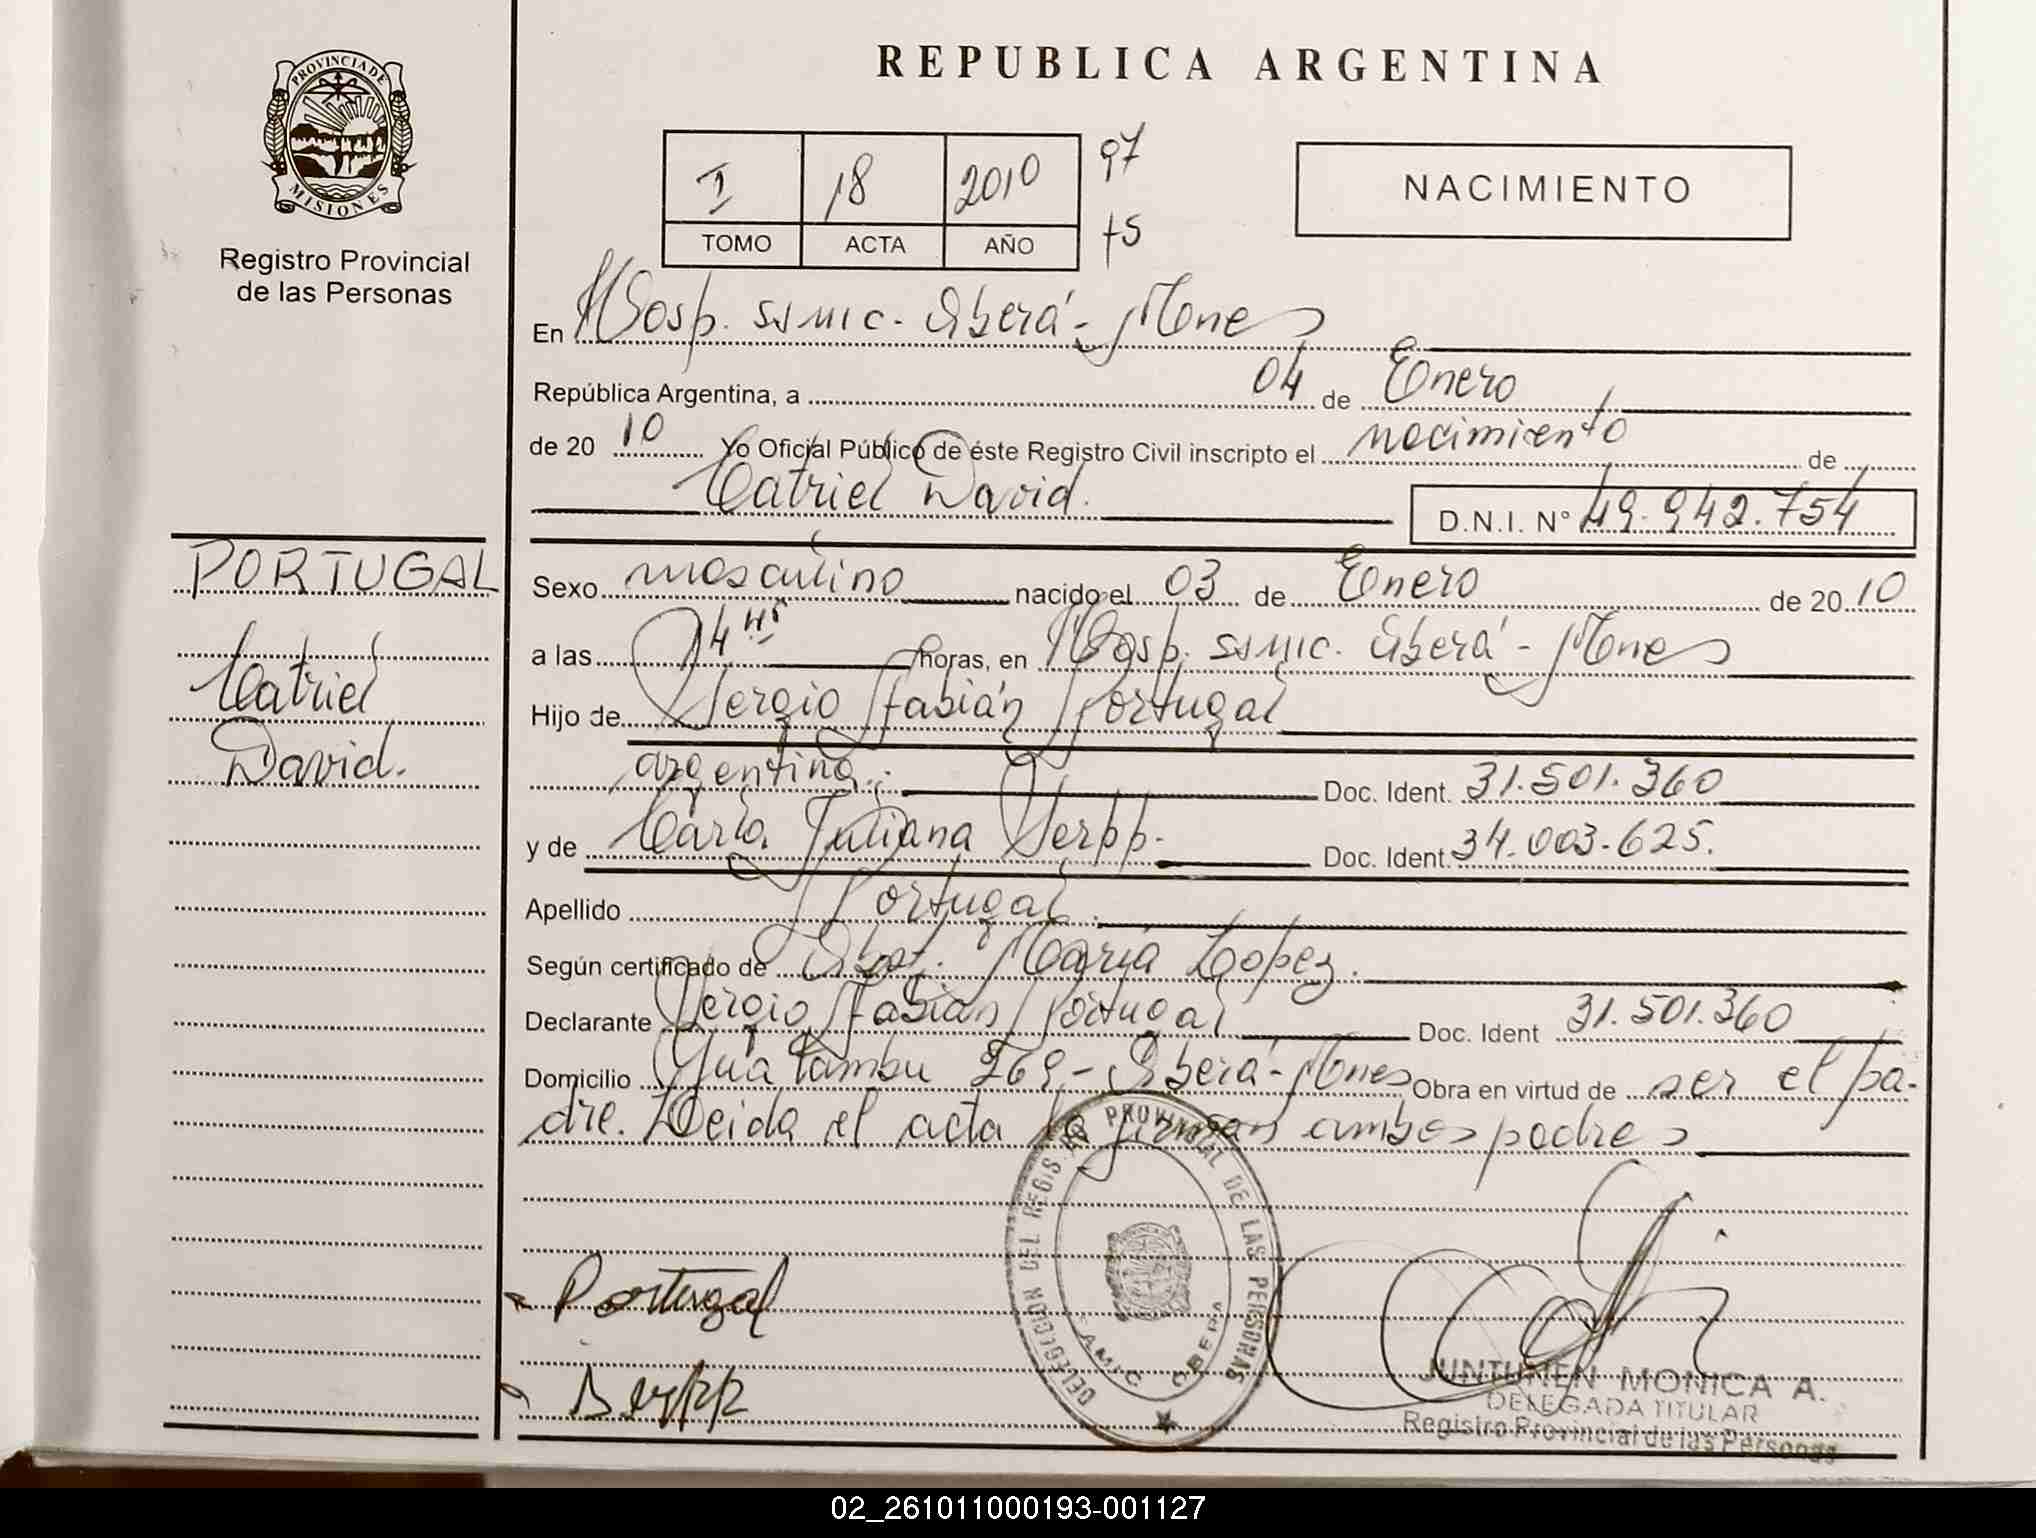 REPUBLICA ARGENTINA
PROVINCIA DE MISIONES
Registro Provincial
de las Personas
I 18 2010 97
TOMO ACTA AÑO 75
NACIMIENTO
En Hosp. SAMIC. Oberá - Mnes
República Argentina, a 04 de Enero
de 2010 Yo Oficial Público de éste Registro Civil inscripto el nacimiento de
Catriel David.
D.N.I. N° 49.942.754
PORTUGAL
Catriel
David.
Sexo masculino nacido el 03 de Enero de 2010
a las 14 hs horas, en Hosp. SAMIC. Oberá - Mnes
Hijo de Sergio Fabián Portugal
argentino. Doc. Ident. 31.501.360
y de Carla Juliana Doc. Ident. 34.003.625.
Apellido Portugal.
Según certificado de Obst. María Lopez.
Declarante Sergio Fabian Portugal Doc. Ident 31.501.360
Domicilio Guatambu 269,- Oberá - Mnes Obra en virtud de ser el pa-
dre. Leida el acta la firman ambos padres
DELEGACION DEL REGISTRO PROVINCIAL DE LAS PERSONAS
OBERA
Portugal
JUNTUNEN MONICA A.
DELEGADA TITULAR
Registro Provincial de las Personas
02_261011000193-001127